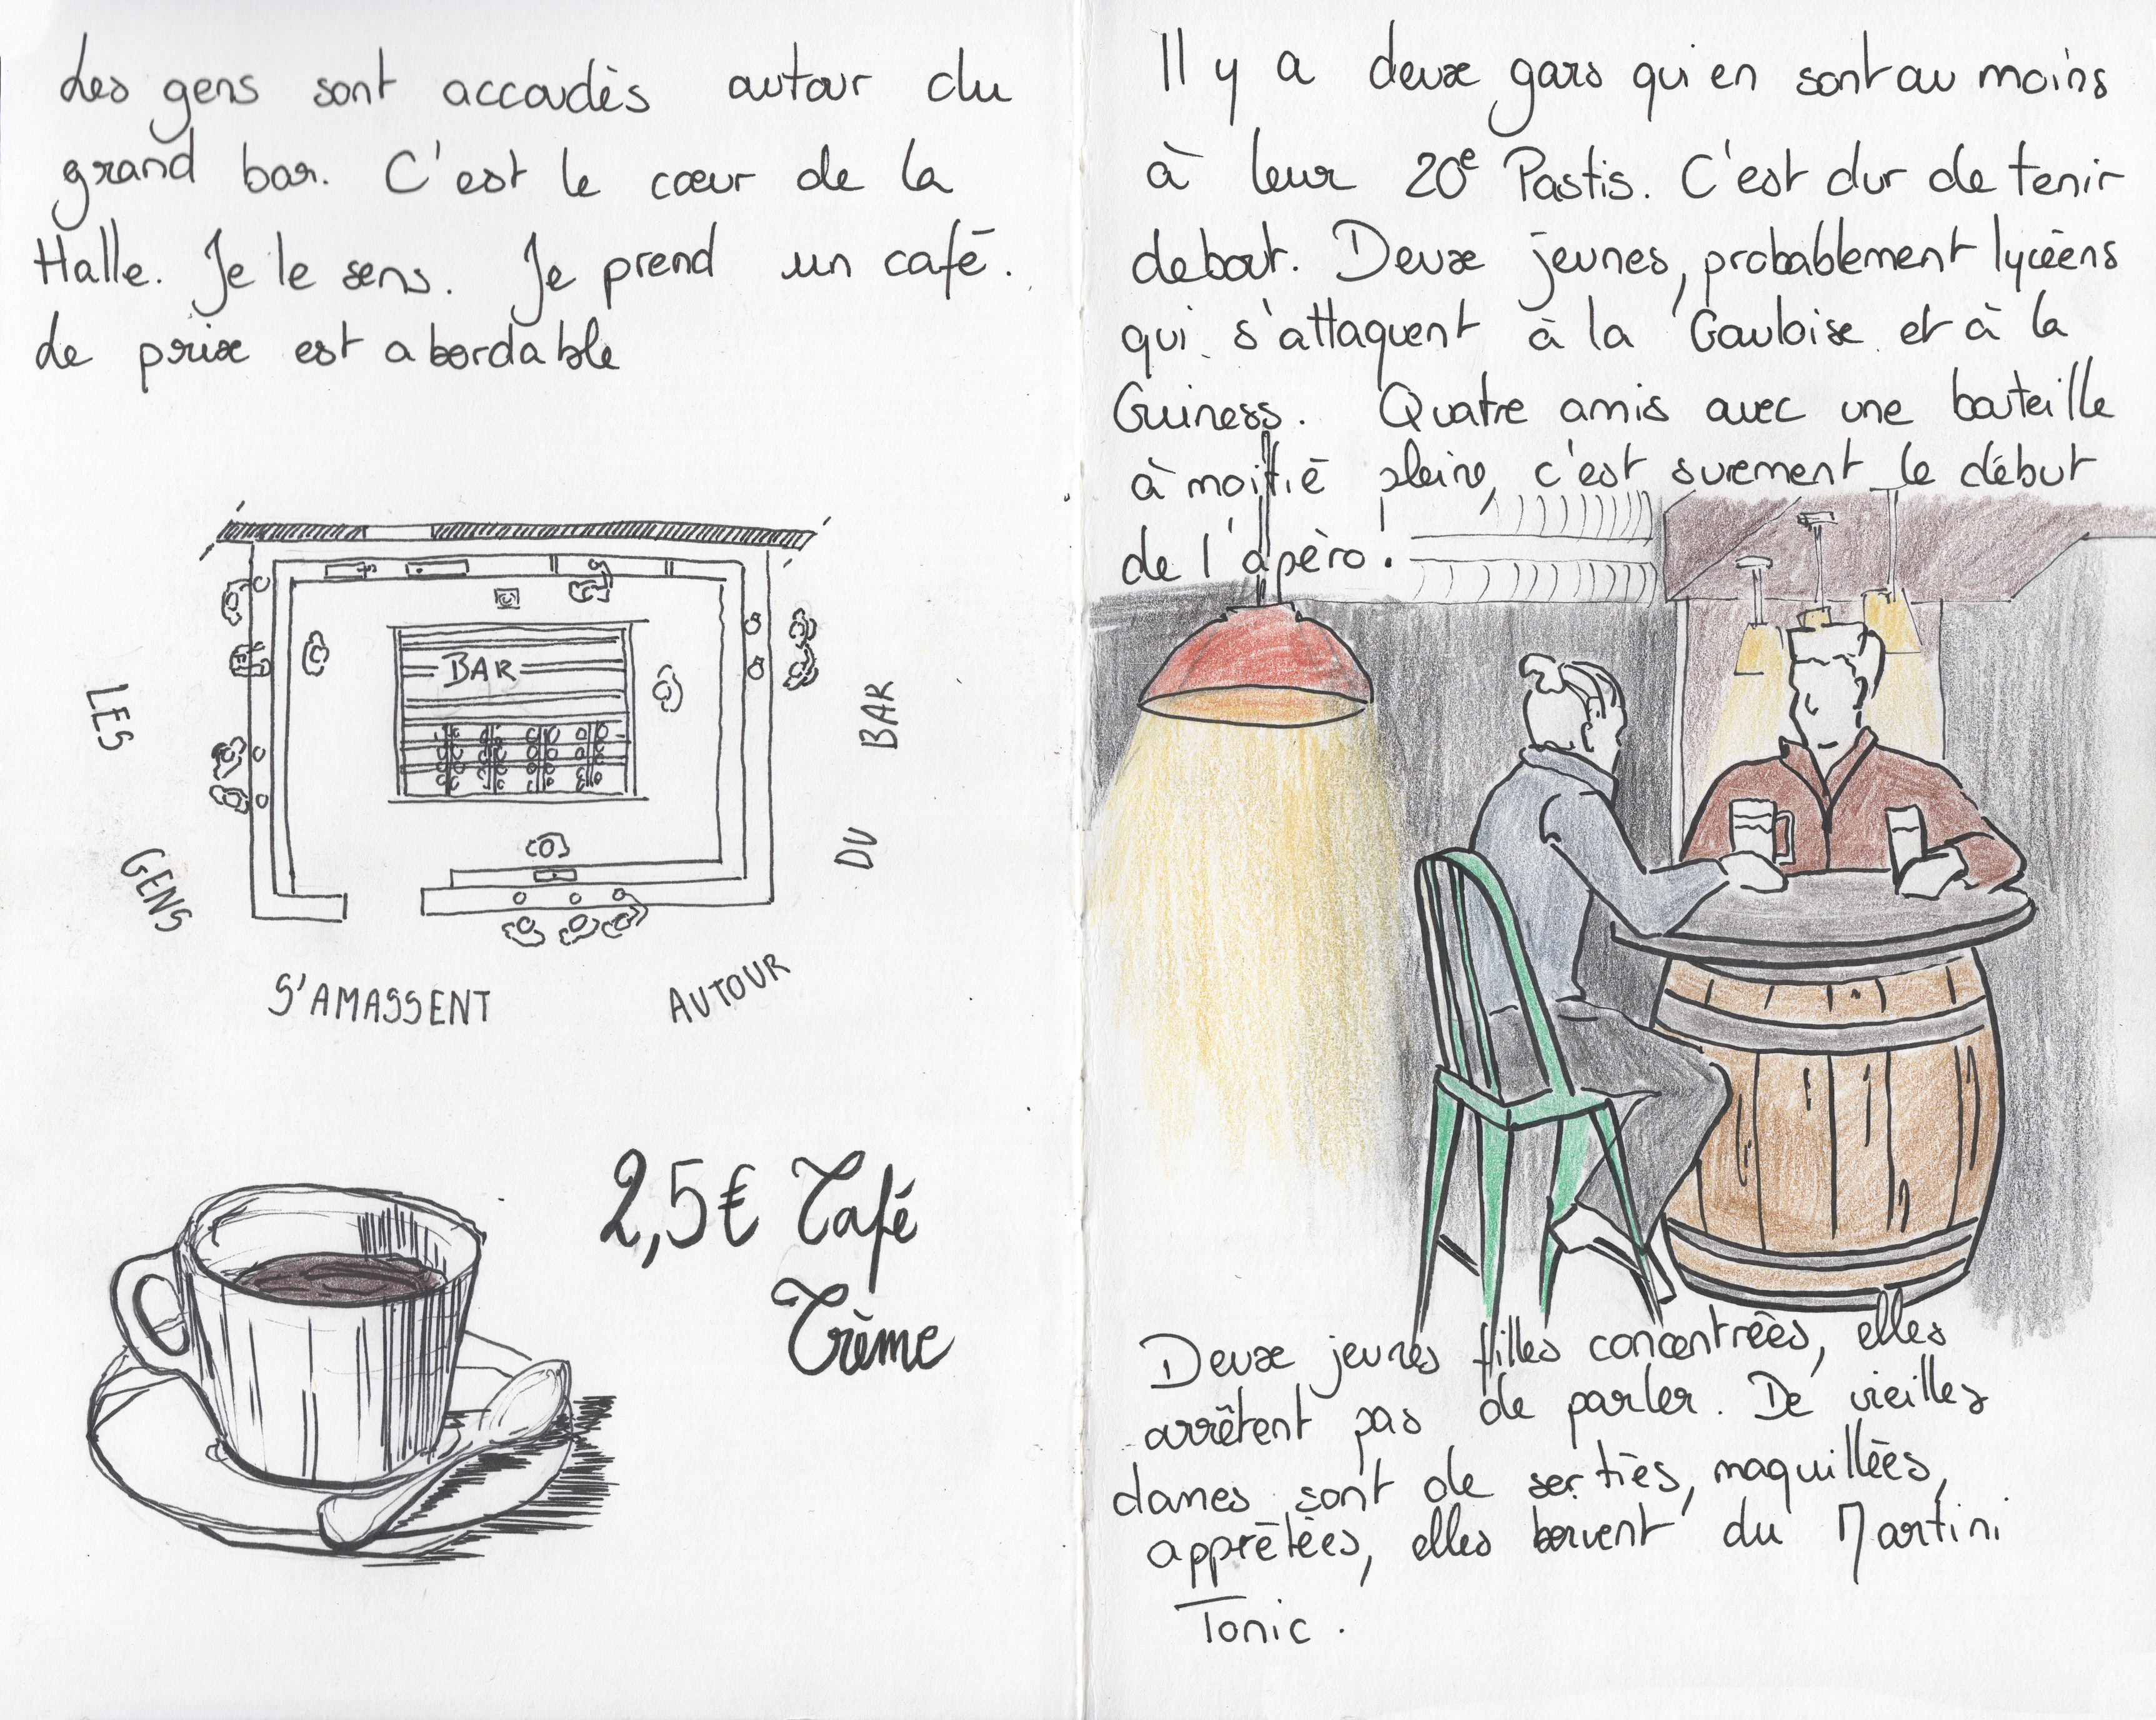 Les gens sont accoudés autour du
grand bar. C'est le cœur de la
Halle. Je le sens. Je prend un café.
Le prix est abordable
BAR
LES
GENS
S'AMASSENT
AUTOUR
DU
BAR
2,5€ Café
Crème
Il y a deux gars qui en sont au moins
à leur 20e Pastis. C'est dur de tenir
debout. Deux jeunes, probablement lycéens
qui s'attaquent à la Gauloise et à la
Guiness. Quatre amis avec une bouteille
à moitié pleine, c'est surement le début
de l'apéro !
Deux jeunes filles concentrées, elles
arrêtent pas de parler. De vieilles
dames sont de serties, maquillées,
apprêtées, elles boivent du Martini
Tonic.